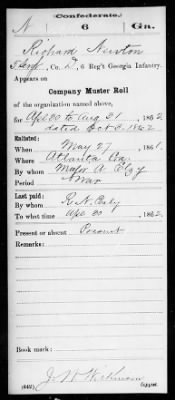 Confederate.
N 6 Ga.
Richard Newton
Co. D, 6 Reg't Georgia Infantry.
Appears on
Company Muster Roll
of the organization named above,
for Apl 30 to Aug 31, 1862
dated Oct 3, 1862
Enlisted:
When May 27, 1861.
Where Atlanta Ga.
By whom Major A
Period War
Last paid:
By whom R. N.
To what time Apl 30, 1862.
Present or absent Present
Remarks:
Book mark:
J. W.
(642) Copyist.